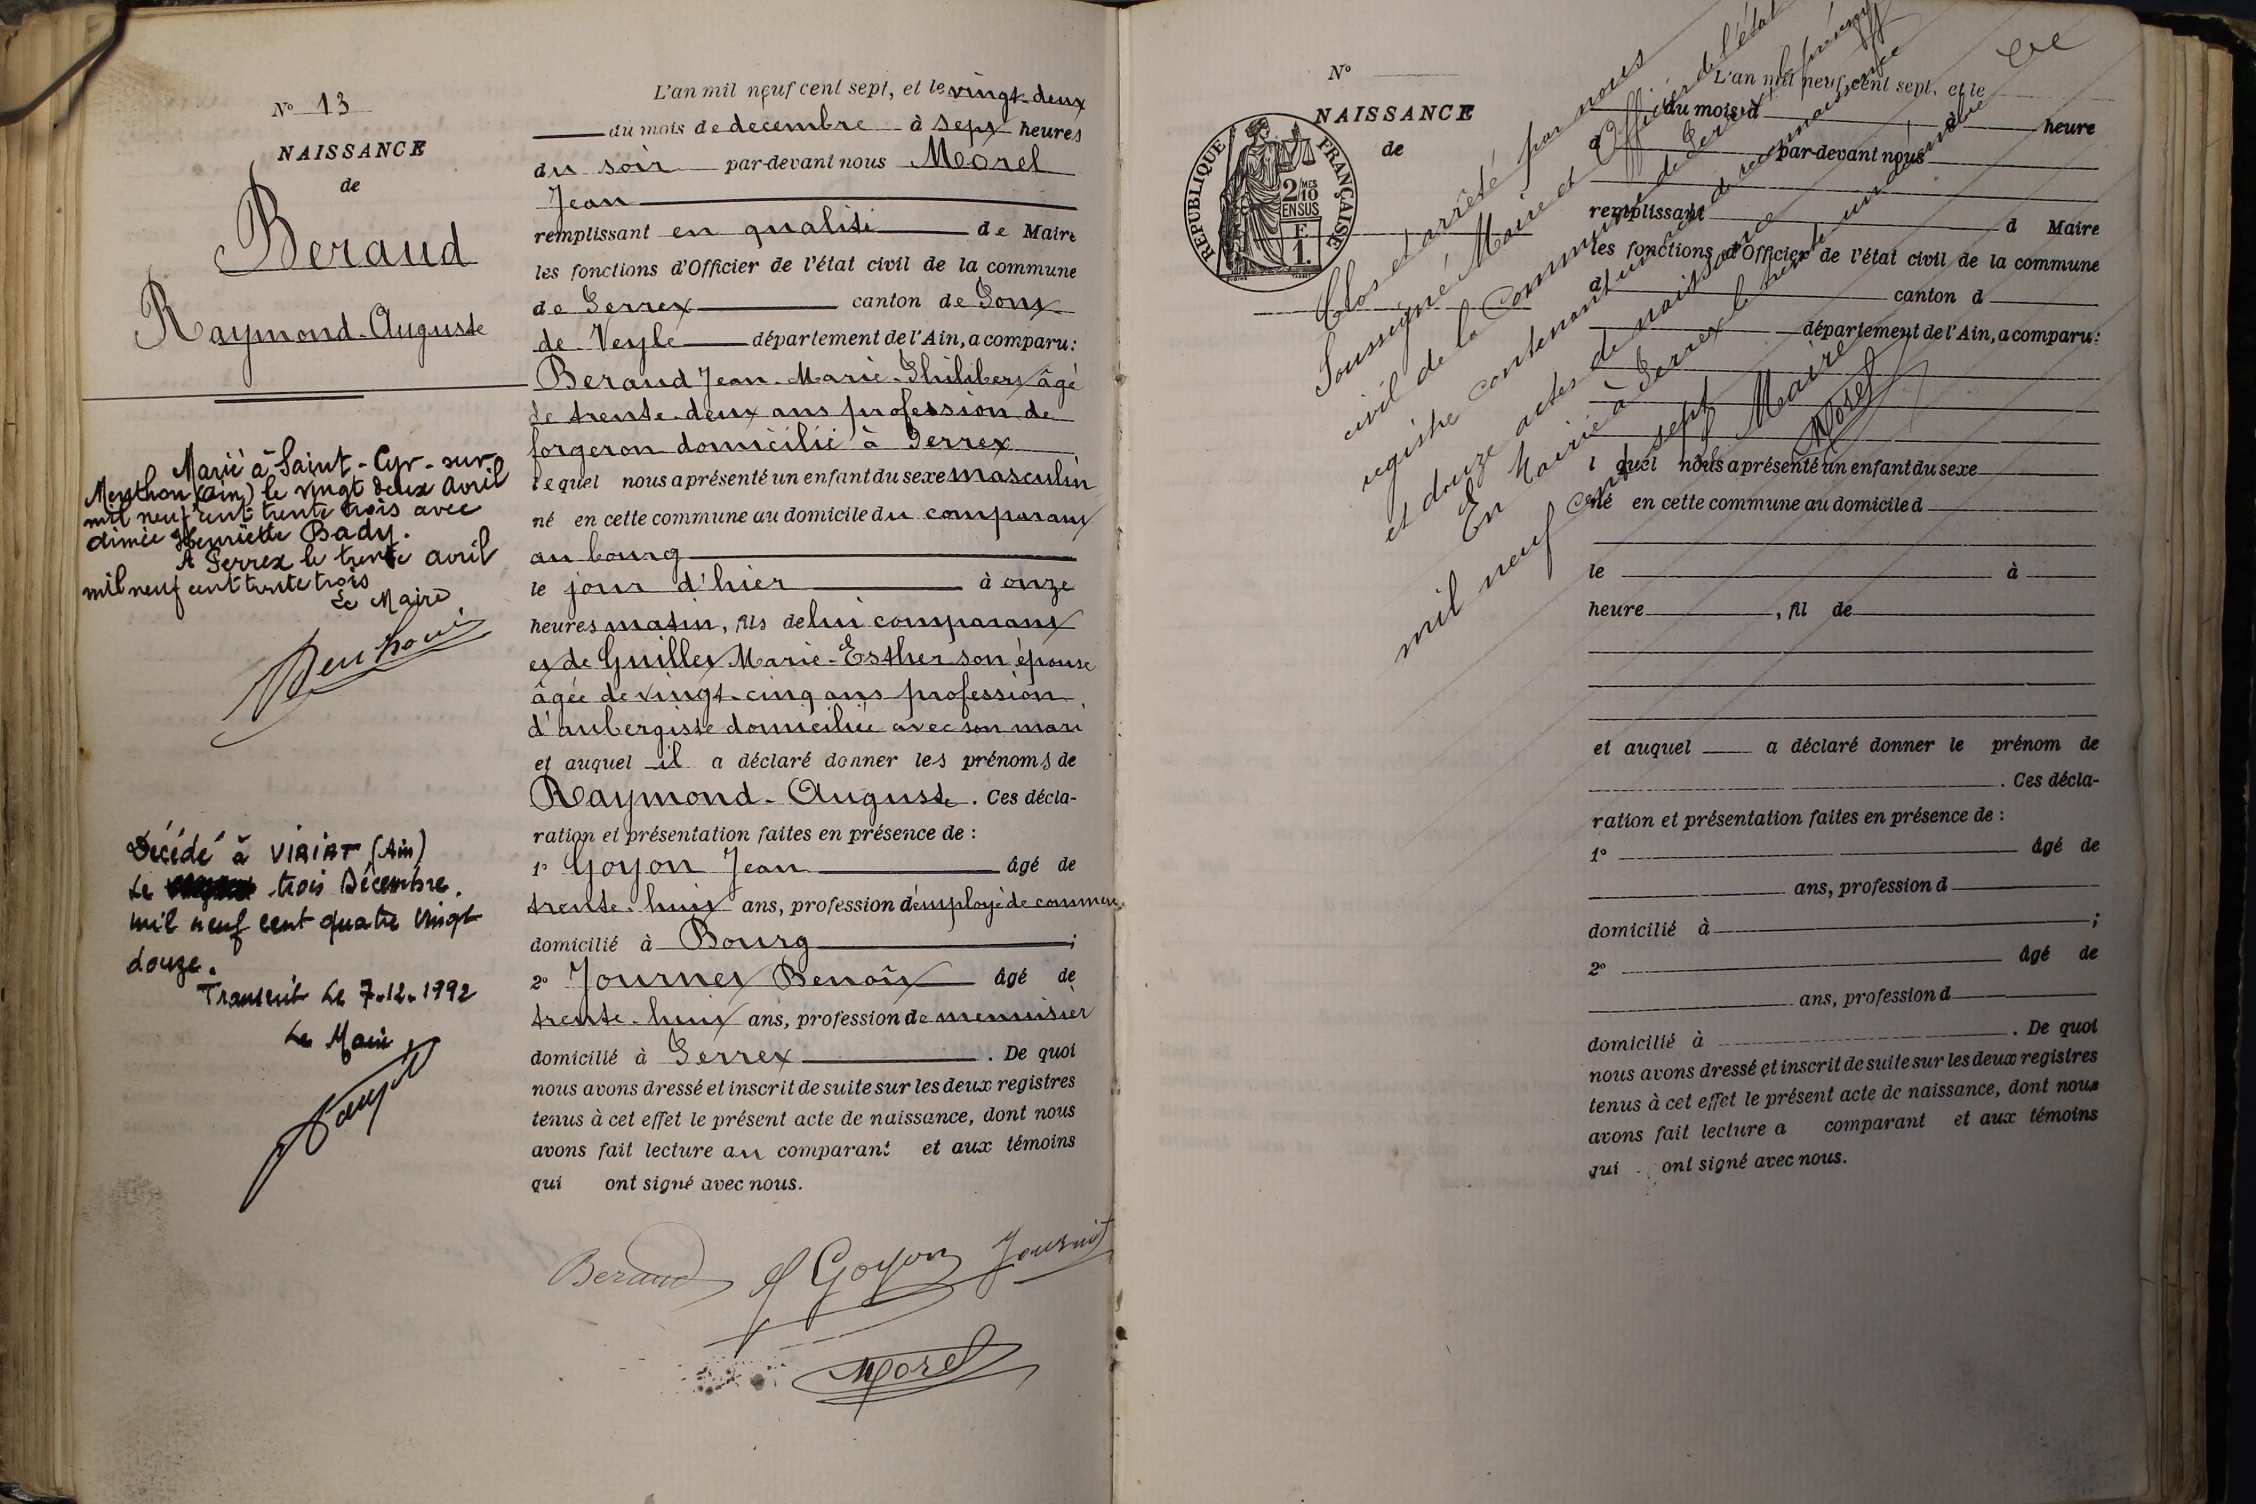 N° 13
NAISSANCE
de
Beraud
Raymond-Auguste
Marié à Saint-Cyr-sur
Menthon (Ain) le vingt deux avril
mil neuf cent trente trois avec
Aimée Henriette Bady.
A Perrex le trente avril
mil neuf cent trente trois
Le Maire
Décédé à VIRIAT (Ain)
Le trois Décembre.
mil neuf cent quatre vingt
douze.
Transcrit Le 7.12.1992
Le Maire,
L'an mil neuf cent sept, et le vingt-deux
du mois de decembre à sept heures
du soir par-devant nous Morel
Jean
remplissant en qualité de Maire
les fonctions d'Officier de l'état civil de la commune
de Perrex canton de Pont
de Veyle département de l'Ain, a comparu:
Beraud Jean-Marie-Philibert âgé
de trente-deux ans profession de
forgeron domicilié à Perrex
lequel nous a présenté un enfant du sexe masculin
né en cette commune au domicile du comparant
au bourg
le jour d'hier à onze
heures matin, fils de lui comparant
et de Guillet Marie-Esther son épouse
âgée de vingt-cinq ans profession
d'aubergiste domiciliée avec son mari
et auquel il a déclaré donner les prénoms de
Raymond-Auguste. Ces décla-
ration et présentation faites en présence de :
1° Goyon Jean âgé de
trente-huit ans, profession d'employé de commerce
domicilié à Bourg ;
2° Journet Benoît âgé de
trente-huit ans, profession de menuisier
domicilié à Perrex . De quoi
nous avons dressé et inscrit de suite sur les deux registres
tenus à cet effet le présent acte de naissance, dont nous
avons fait lecture au comparant et aux témoins
qui ont signé avec nous.
Beraud Goyon Journet
Morel
N°
NAISSANCE
de
REPUBLIQUE FRANÇAISE
2 MES
10
EN SUS
F
1.
Clos et arrêté par nous
Soussigné Maire et Officier de l'état
civil de la Commune de Perrex le présent
registre contenant un acte de reconnaissance
et douze actes de naissance
En Mairie à Perrex le trente un décembre
mil neuf cent sept
Le Maire
Morel
L'an mil neuf cent sept, et le
du mois d à heure
d par-devant nous
remplissant d Maire
les fonctions d'Officier de l'état civil de la commune
d canton d
département de l'Ain, a comparu:
l quel nous a présenté un enfant du sexe
né en cette commune au domicile d
le à
heure , fil de
et auquel a déclaré donner le prénom de
. Ces décla-
ration et présentation faites en présence de :
1° âgé de
ans, profession d
domicilié à ;
2° âgé de
ans, profession d
domicilié à . De quoi
nous avons dressé et inscrit de suite sur les deux registres
tenus à cet effet le présent acte de naissance, dont nous
avons fait lecture a comparant et aux témoins
qui ont signé avec nous.